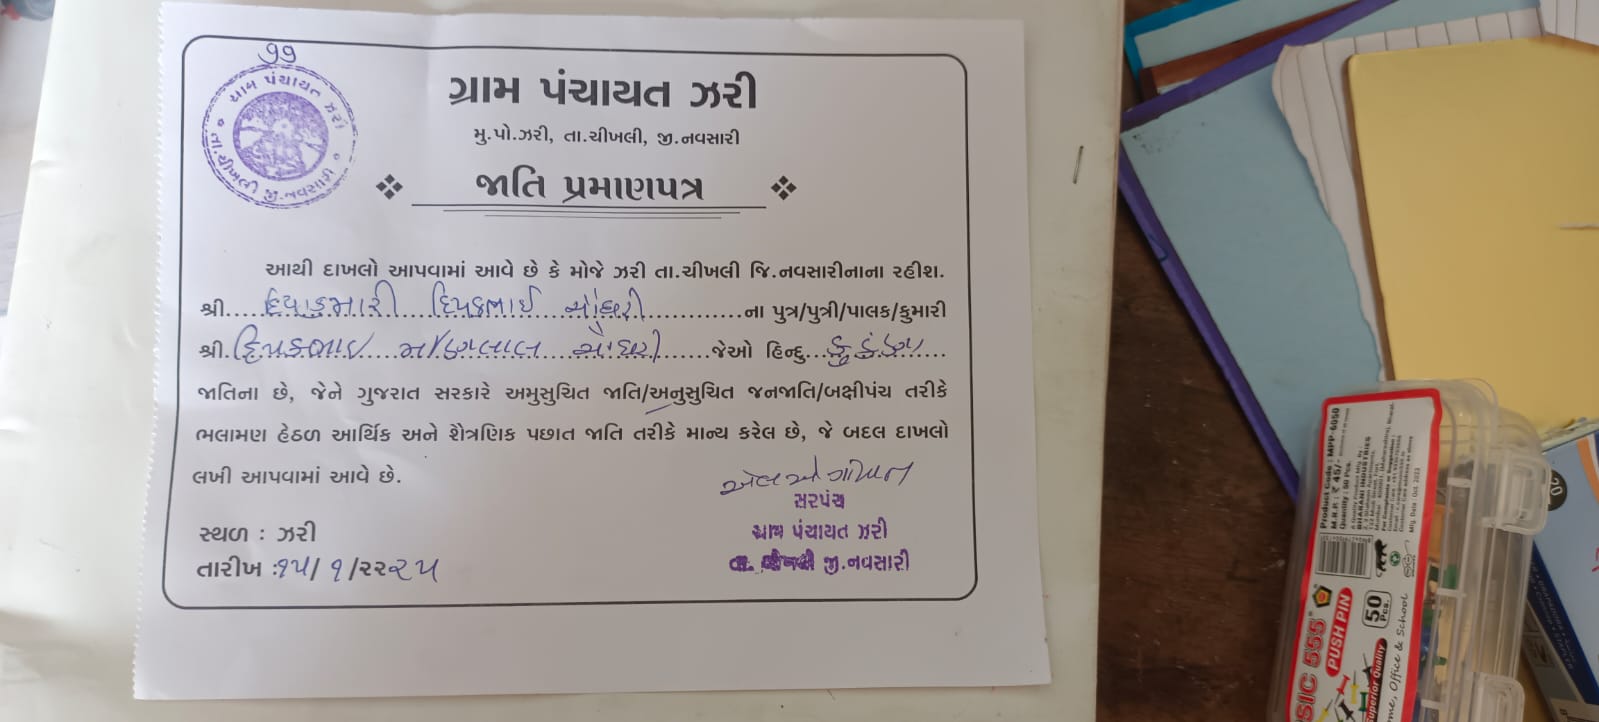 ૧૧
ગ્રામ પંચાયત ઝરી
તા.ચીખલી જી.નવસારી
ગ્રામ પંચાયત ઝરી
મુ.પો.ઝરી, તા.ચીખલી, જી.નવસારી
જાતિ પ્રમાણપત્ર
આથી દાખલો આપવામાં આવે છે કે મોજે ઝરી તા.ચીખલી જિ.નવસારીનાના રહીશ.
શ્રી....દિયાકુમારી દિપકભાઈ ચૌધરી............ના પુત્ર/પુત્રી/પાલક/કુમારી
શ્રી.દિપકભાઇ ચૌધરી.......જેઓ હિન્દુ...
જાતિના છે, જેને ગુજરાત સરકારે અમુસુચિત જાતિ/અનુસુચિત જનજાતિ/બક્ષીપંચ તરીકે
ભલામણ હેઠળ આર્થિક અને શૈત્રણિક પછાત જાતિ તરીકે માન્ય કરેલ છે, જે બદલ દાખલો
લખી આપવામાં આવે છે.
સરપંચ
ગ્રામ પંચાયત ઝરી
તા. ચીખલી જી.નવસારી
સ્થળ : ઝરી
તારીખ :૧૫/ ૧/૨૨૨૫
Product Code : MPP-6050
M.R.P. : ₹ 45/-
Quantity : 50 Pcs.
BHARANI INDUSTRIES
Mfg. Date : Oct. 2023
SIC 555
PUSH PIN
50 Pcs.
Superior Quality
me, Office & School